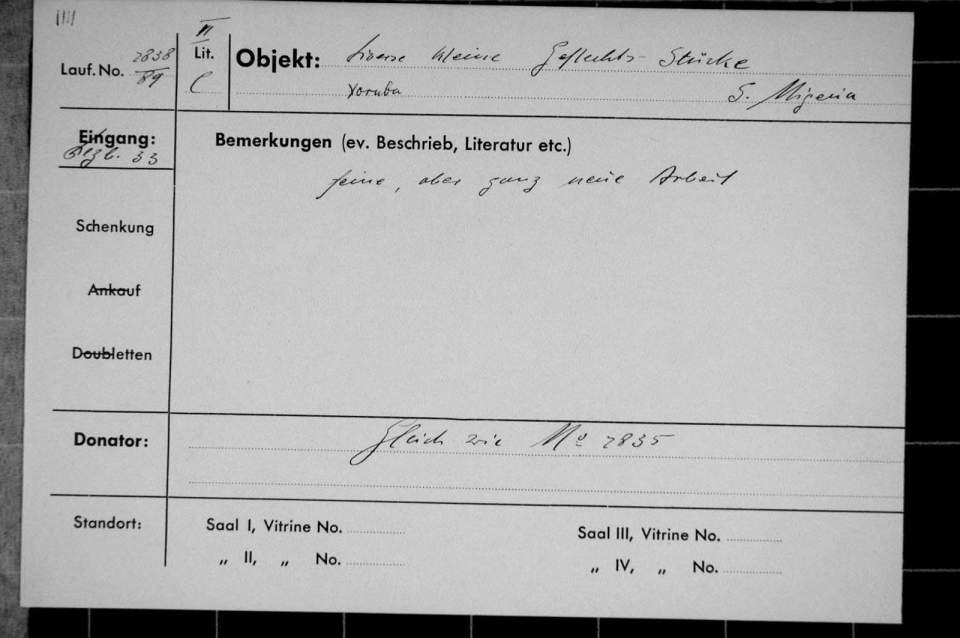 IIII
Lauf. No. 2838/89
II
Lit.
C
Objekt: Diverse kleine Geflechts-Stücke
Yoruba S. Nigeria
Eingang:
Dezb. 33
Bemerkungen (ev. Beschrieb, Literatur etc.)
feine, aber ganz neue Arbeit
Schenkung
Ankauf
Doubletten
Donator: Gleich wie No 2835
Standort: Saal I, Vitrine No. Saal III, Vitrine No.
„ II, „ No. „ IV, „ No.